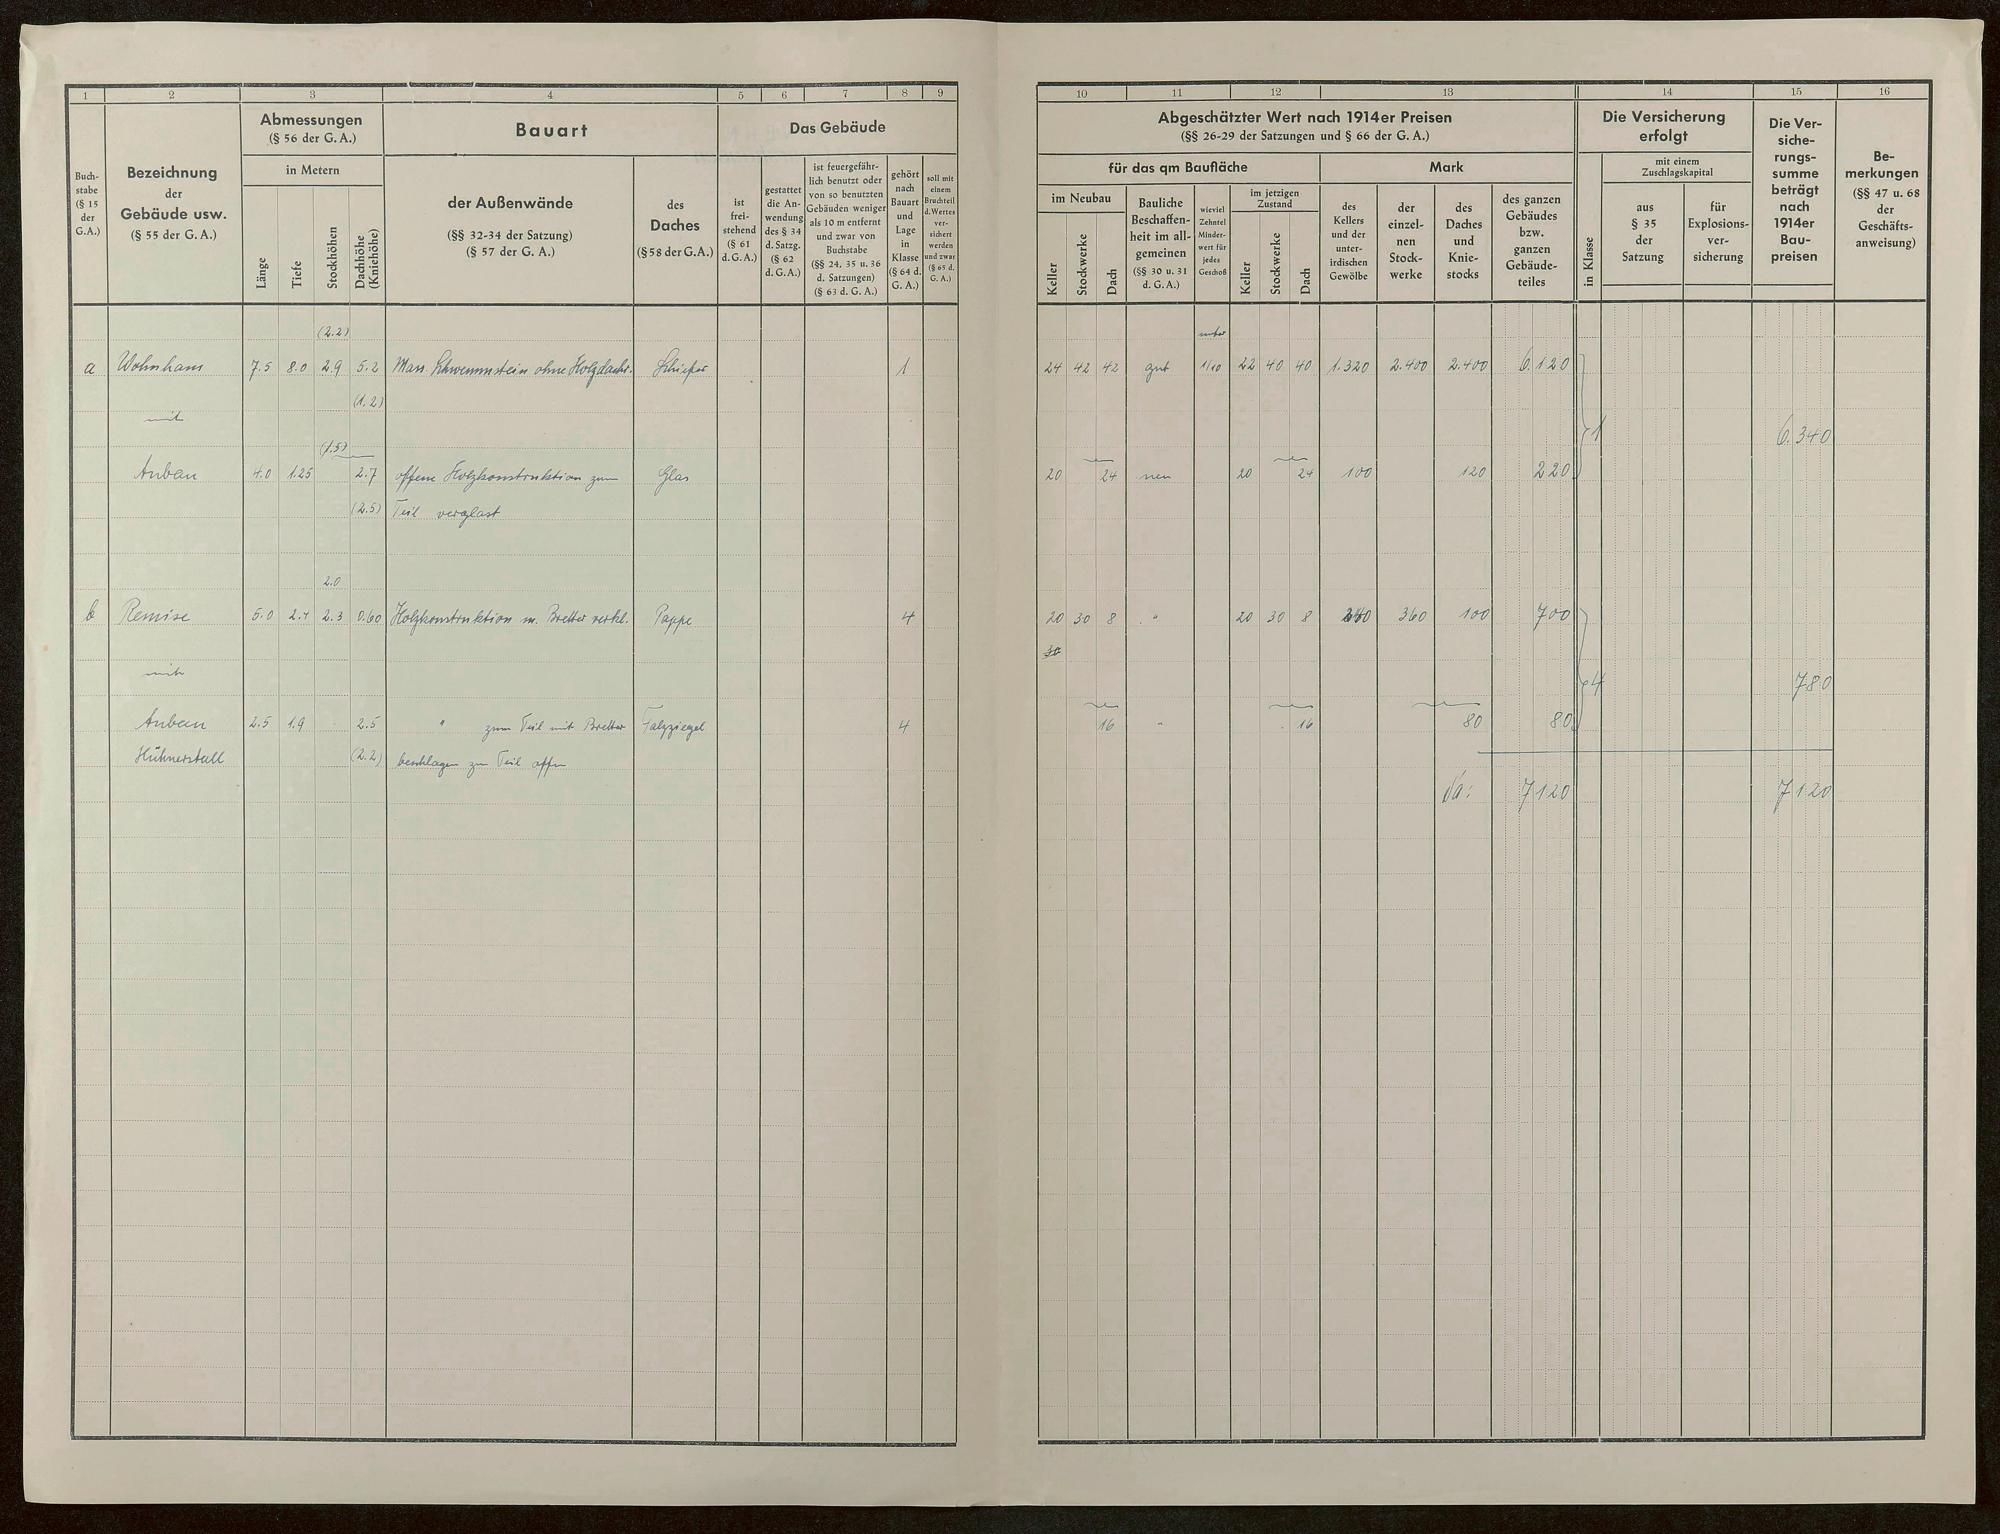 1 2 3 4 5 6 7 8 9
Buch-
stabe
(§ 15
der
G.A.)
Bezeichnung
der
Gebäude usw.
(§ 55 der G. A.)
Abmessungen
(§ 56 der G. A.)
in Metern
Länge
Tiefe
Stockhöhen
Dachhöhe
(Kniehöhe)
Bauart
der Außenwände
(§§ 32-34 der Satzung)
(§ 57 der G. A.)
des
Daches
(§ 58 der G.A.)
Das Gebäude
ist
frei-
stehend
(§ 61
d. G.A.)
gestattet
die An-
wendung
des § 34
d. Satzg.
(§ 62
d. G.A.)
ist feuergefähr-
lich benutzt oder
von so benutzten
Gebäuden weniger
als 10 m entfernt
und zwar von
Buchstabe
(§§ 24, 35 u. 36
d. Satzungen)
(§ 63 d. G. A.)
gehört
nach
Bauart
und
Lage
in
Klasse
(§ 64 d.
G. A.)
soll mit
einem
Bruchteil
d. Wertes
ver-
sichert
werden
und zwar
(§ 65 d.
G. A.)
(2.2)
a Wohnhaus 7.5 8.0 2.9 5.2 Mass. Schwemmstein ohne Schiefer 1
(1.2)
mit
(1.5)
Anbau 4.0 1.25 2.7 offene Holzkonstruktion zum Glas
(2.5) Teil verglast
2.0
b Remise 5.0 2.4 2.3 0.60 Holzkonstruktion m. Bretter verkl. Pappe 4
mit
Anbau 2.5 1.9 2.5 " zum Teil mit Bretter Falzziegel 4
Hühnerstall (2.2) beschlagen zum Teil offen
10 11 12 13 14 15 16
Abgeschätzter Wert nach 1914er Preisen
(§§ 26-29 der Satzungen und § 66 der G. A.)
für das qm Baufläche
im Neubau
Keller
Stockwerke
Dach
Bauliche
Beschaffen-
heit im all-
gemeinen
(§§ 30 u. 31
d. G.A.)
wieviel
Zehntel
Minder-
wert für
jedes
Geschoß
im jetzigen
Zustand
Keller
Stockwerke
Dach
Mark
des
Kellers
und der
unter-
irdischen
Gewölbe
der
einzel-
nen
Stock-
werke
des
Daches
und
Knie-
stocks
des ganzen
Gebäudes
bzw.
ganzen
Gebäude-
teiles
Die Versicherung
erfolgt
in Klasse
mit einem
Zuschlagskapital
aus
§ 35
der
Satzung
für
Explosions-
ver-
sicherung
Die Ver-
siche-
rungs-
summe
beträgt
nach
1914er
Bau-
preisen
Be-
merkungen
(§§ 47 u. 68
der
Geschäfts-
anweisung)
unter
24 42 42 gut 1/10 22 40 40 1.320 2.400 2.400 6.120
1 6.340
20 24 neu 20 24 100 120 220
20 30 8 " 20 30 8 240 360 100 700
30
4 780
16 " 16 80 80
Sa: 7120 7120